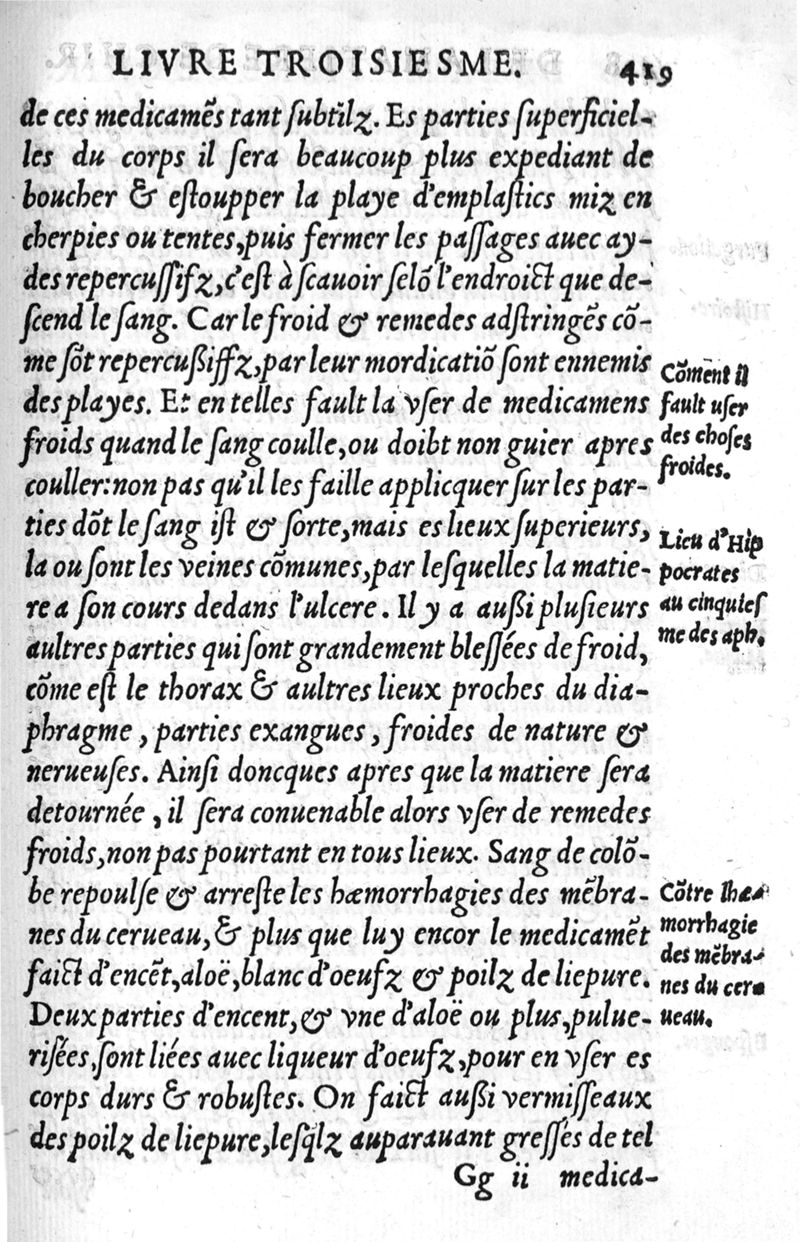 LIVRE TROISIESME. 419
de ces medicamẽs tant ſubtilz. Es parties ſuperficiel-
les du corps il ſera beaucoup plus expediant de
boucher & eſtoupper la playe d'emplaſtics miz en
cherpies ou tentes, puis fermer les paſſages auec ay-
des repercuſſifz, c'eſt à ſcauoir ſelõ l'endroict que de-
ſcend le ſang. Car le froid & remedes adſtringẽs cõ-
me ſõt repercußiffz, par leur mordicatiõ ſont ennemis
des playes. Et en telles fault la vſer de medicamens
froids quand le ſang coulle, ou doibt non guier apres
couller: non pas qu'il les faille applicquer ſur les par-
ties dõt le ſang iſt & ſorte, mais es lieux ſuperieurs,
la ou ſont les veines cõmunes, par leſquelles la matie-
re a ſon cours dedans l'ulcere. Il y a außi pluſieurs
aultres parties qui ſont grandement bleſſées de froid,
cõme eſt le thorax & aultres lieux proches du dia-
phragme, parties exangues, froides de nature &
nerueuſes. Ainſi doncques apres que la matiere ſera
detournée, il ſera conuenable alors vſer de remedes
froids, non pas pourtant en tous lieux. Sang de colõ-
be repoulſe & arreſte les hæmorrhagies des mẽbra-
nes du cerueau, & plus que luy encor le medicamẽt
faict d'encẽt, aloë, blanc d'oeufz & poilz de liepure.
Deux parties d'encent, & vne d'aloë ou plus, pulue-
riſées, ſont liées auec liqueur d'oeufz, pour en vſer es
corps durs & robuſtes. On faict außi vermiſſeaux
des poilz de liepure, leſq̃lz auparauant greſſés de tel
Gg ii medica-
Cõment il
fault uſer
des choſes
froides.
Lieu d'Hip
pocrates
au cinquieſ
me des aph.
Cõtre lhæ-
morrhagie
des mẽbra-
nes du cer-
ueau.